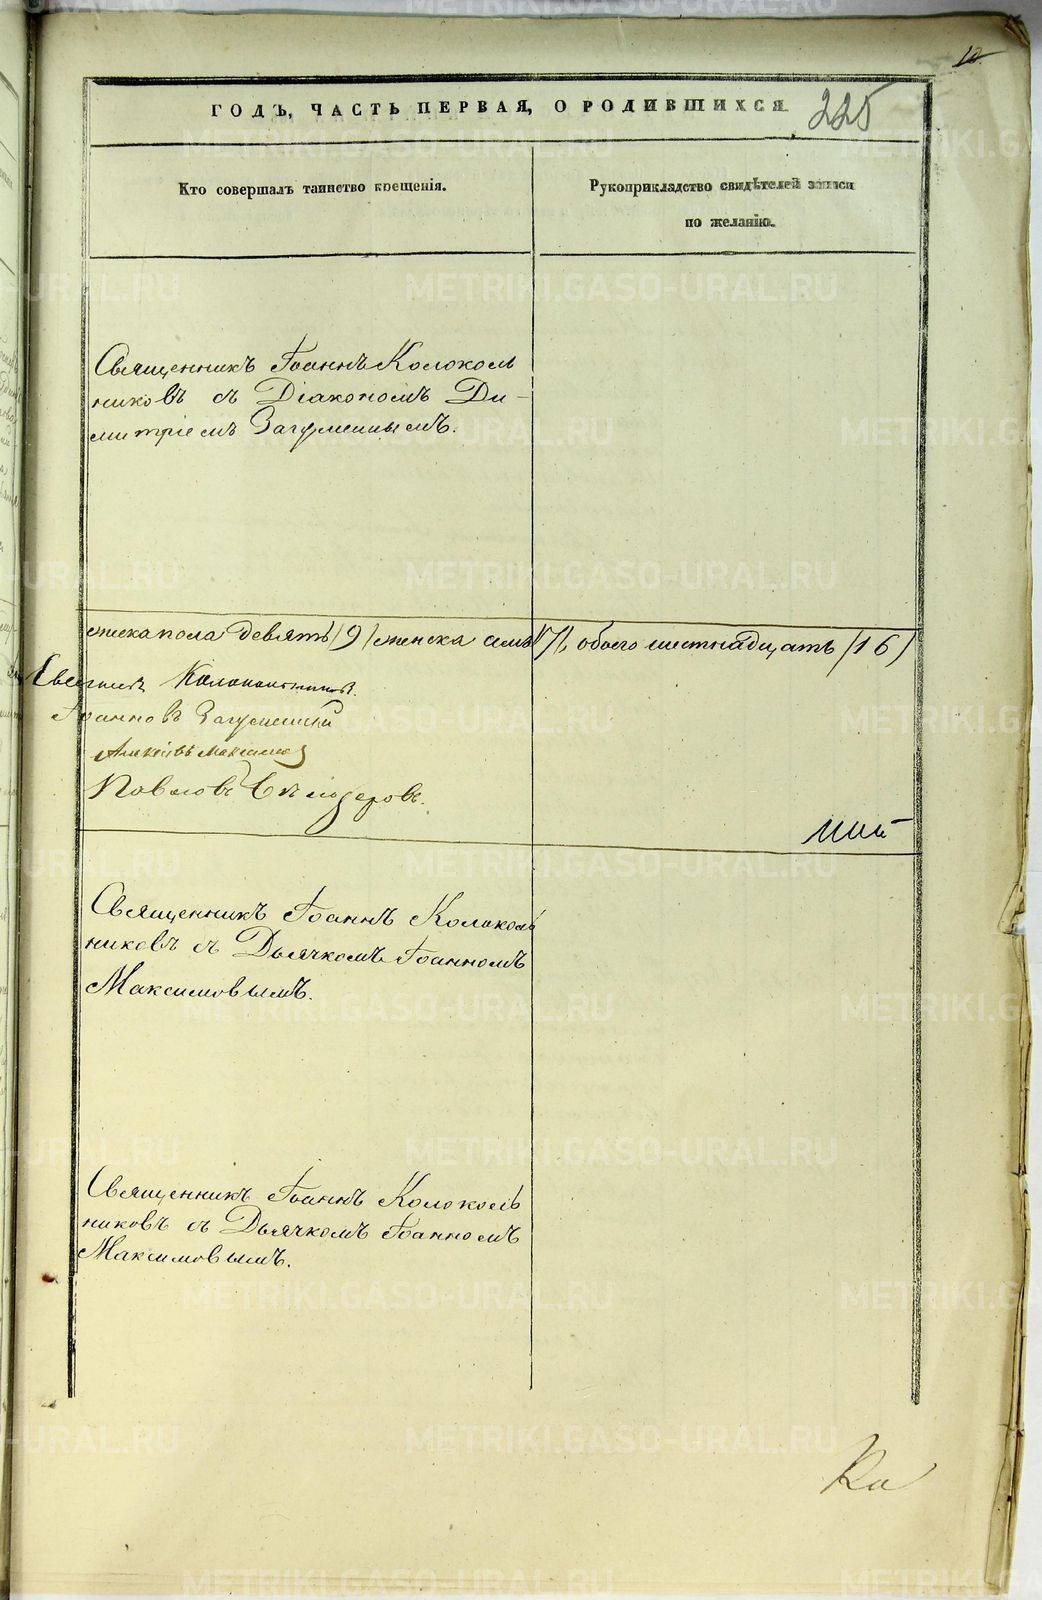 10
ГОДЪ, ЧАСТЬ ПЕРВАЯ, О РОДИВШИХСЯ. 225
Кто совершалъ таинство крещенія.
Рукоприкладство свидѣтелей записи
по желанію.
Священникъ Іоаннъ Колоколь
никовъ съ Діакономъ Ди-
митріемъ Загуменнымъ.
мужска пола девять /9/ женска семь /7/, обоего шестнадцать /16/
Колокольниковъ.
Іоанновъ Загуменный
Алексѣевъ Максимов
Павловъ
Священникъ Іоаннъ Колоколь
никовъ съ Дьячкомъ Іоанномъ
Максимовымъ.
Священникъ Іоаннъ Колоколь
никовъ съ Дьячкомъ Іоанномъ
Максимовымъ.
METRIKI.GASO-URAL.RU